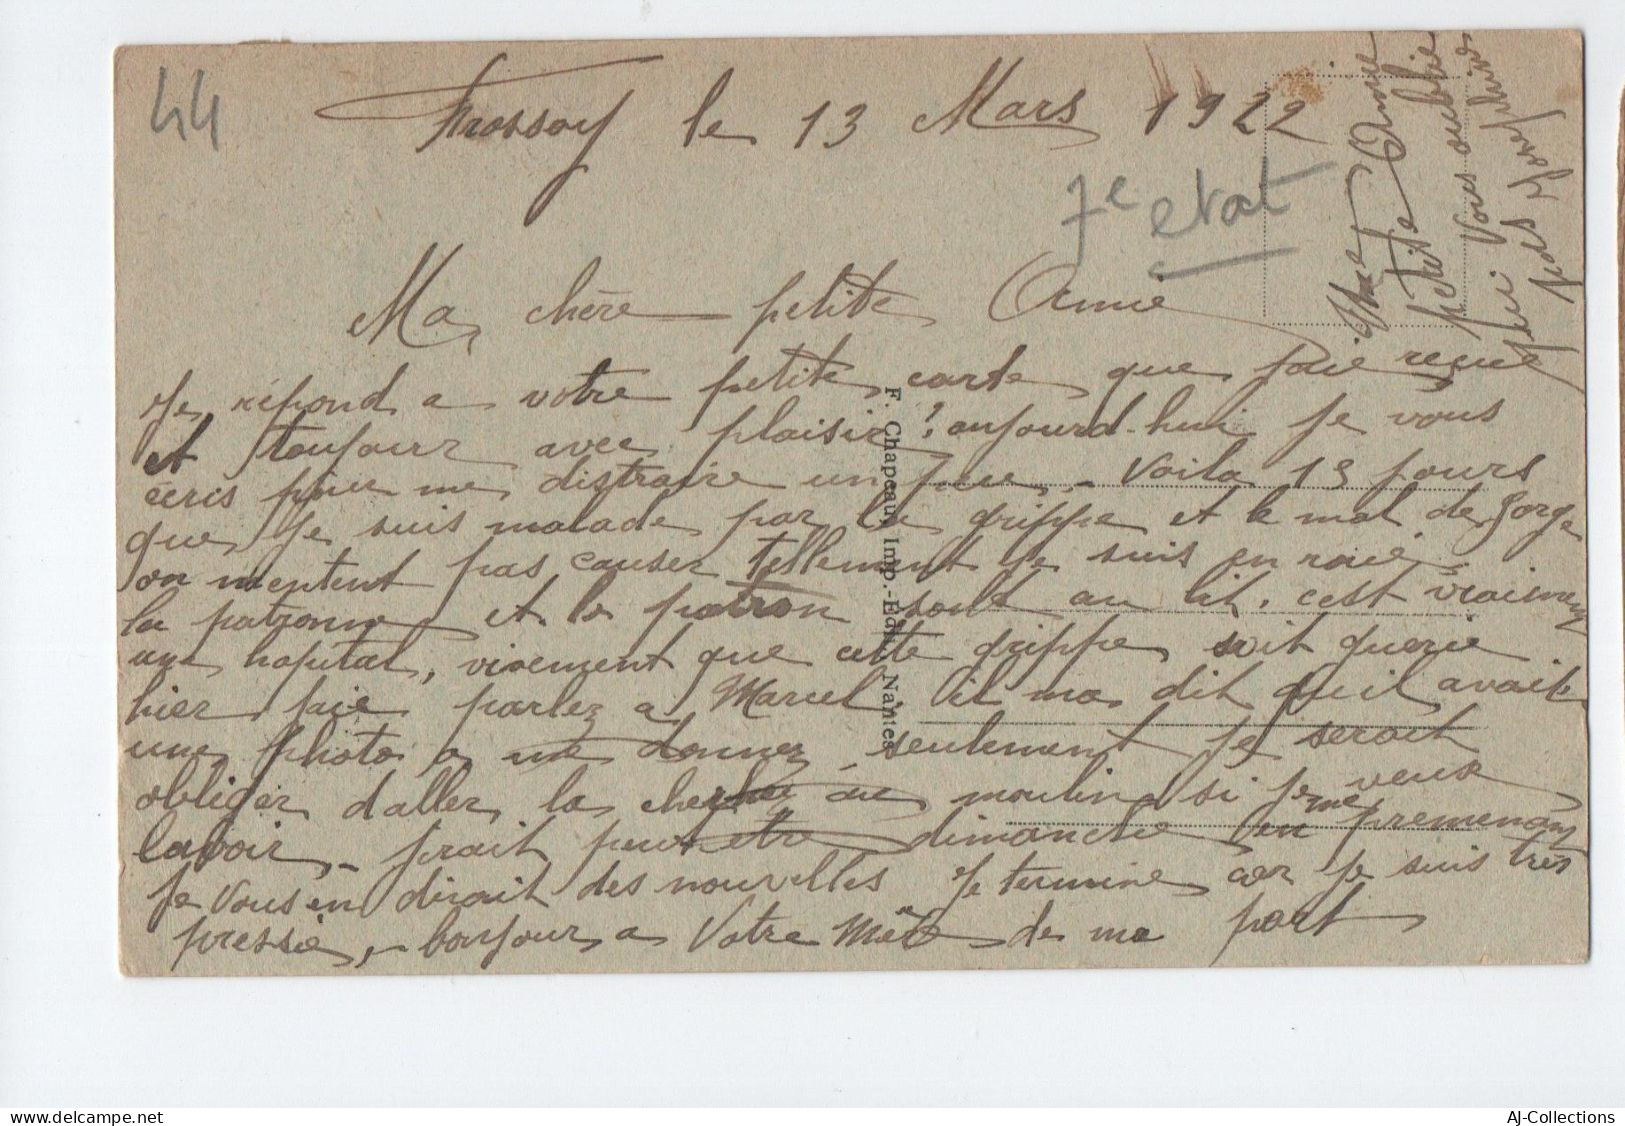 44
Frossay le 13 Mars 1922
7e etat
Ma chère petite Amie
Je répond a votre petite carte que jaie reçue
et toujours avec plaisir, aujourd-hui je vous
écris pour me distraire un peu - Voila 13 jours
que je suis malade par la grippe et le mal de gorge
on mentent pas causer tellement je suis enroué
la patronne et le patron sont au lit, c'est vraiment
un hopital, vivement que cette grippe soit guerie
hier jaie parlez a Marcel il ma dit qu'il avait
une photo a me donnez, seulement je serait
obliger d'aller la cherche au moulin si je veux
lavoir, - jirait peut etre dimanche en me promenant
Je vous en dirait des nouvelles Je termine car je suis très
pressée, - bonjour a Votre Mère de ma part
Une
petite Amie
qui Vous oublie
pas
F. Chapeau, Imp.-Edit., Nantes
delcampe.net
AJ-Collections